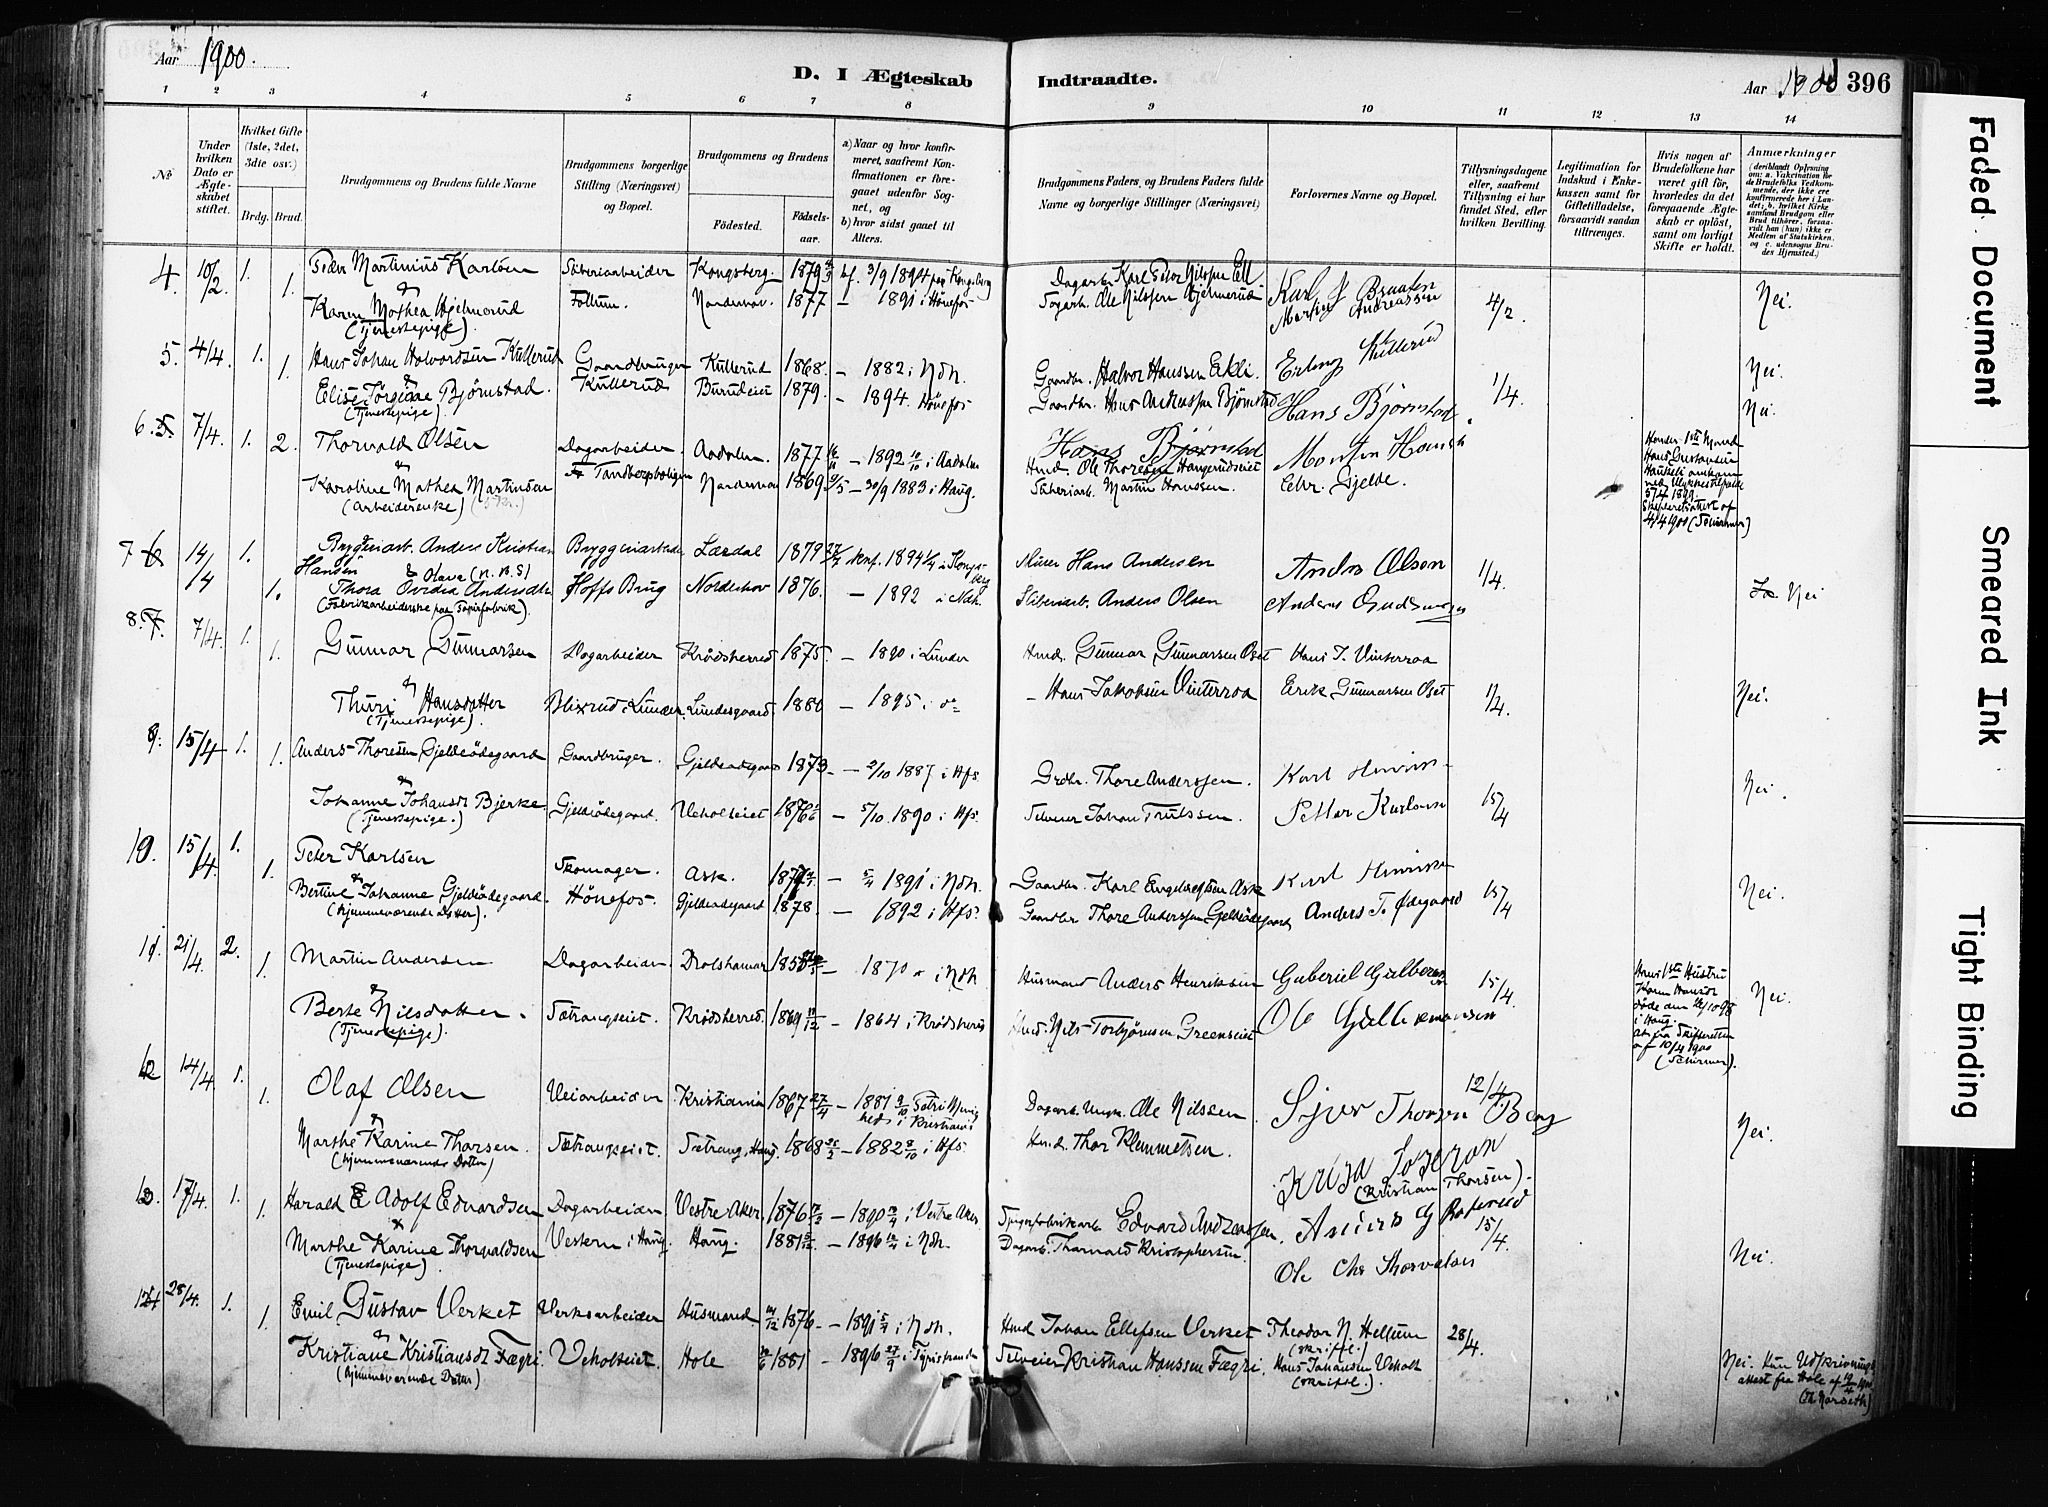 Aar 1900.
D. I Ægteskab Indtraadte.
Aar 1900 396
1 2 3 4 5 6 7 8 9 10 11 12 13 14
No
Under hvilken Dato er Ægteskabet stiftet.
Hvilket Gifte (1ste, 2det, 3die osv.)
Brdg. Brud.
Brudgommens og Brudens fulde Navne
Brudgommens borgerlige Stilling (Næringsvei) og Bopæl.
Brudgommens og Brudens
Fødested. Fødselsaar.
a) Naar og hvor konfirmeret, saafremt Konfirmationen er foregaaet udenfor Sognet, og
b) hvor sidst gaaet til Alters.
Brudgommens Faders, og Brudens Faders fulde Navne og borgerlige Stillinger (Næringsvei)
Forlovernes Navne og Bopæl.
Tillysningsdagene eller, saafremt Tillysning ei har fundet Sted, efter hvilken Bevilling.
Legitimation for Indskud i Enkekassen samt for Giftetilladelse, forsaavidt saadan tiltrænges.
Hvis nogen af Brudefolkene har været gift før, hvorledes da det foregaaende Ægteskab er opløst, samt om lovligt Skifte er holdt.
Anmærkninger (deriblandt Oplysning om: a. Vakcination for de Brudefolks Vedkommende, der ikke ere konfirmerede her i Landet; b. hvilket Kirkesamfund Brudgom eller Brud tilhører, forsaavidt han (hun) ikke er Medlem af Statskirken, og c. udensogns Brudes Hjemsted.)
4. 10/2 1. Peder Martinius Karlsen Sliberiarbeider Kongsberg 1879 3/9 1894 Dagarb. Karl Peter Nilssen Karl J Braaten 4/2 Nei.
1. Karen Mathea Hjelmerud Follum. Norderhov. 1877 – 1891 i Hønefos Ole Nilssen Hjelmerud Martin Andreassen
(Tjenestepige).
5. 4/4. 1. Hans Johan Halvordsen Kullerud Gaardbruger Kullerud 1868. – 1882 i Ndh. Gaardbr. Halvor Hanssen Ekli. Erling Kullerud 1/4. Nei.
1. Elise Jørgine Bjørnstad. Kullerud Burudeiet 1879. – 1894. Hønefos Gaardbr. Hans Anderssen Bjørnstad Hans Bjørnstad Nei.
(Tjenestepige).
6. 7/4. 1. 2. Thorvald Olsen Dagarbeider Aadalen. 1877 – 1892 i Aadalen Hans Bjørnstad Morten Hansen
Hmd. Ole Thoresen
Karoline Mathea Martinsen Tandbergboligen Norderhov 1869 – 30/9 1883 i Haug. Sliberiarb. Martin Hanssen. Chr. Gjelde.
(Arbeiderenke)
Hendes 1ste Mand Hans Gustavsen omkom ved Ulykkestilfælde 5/4 1899. Skifteretsattest af 4/4 1900 (Schirmer)
7 14/4 1. Bryggeriarb. Anders Kristian Hansen Bryggeriarbeider Lærdal 1879 Konf. 1894 i Kongsberg Murer Hans Andersen Anders Olsen 1/4. Nei
& Olava (N.B.S)
1. Thora Ovidia Andersdtr Hoffs Brug Norderhov 1876. – 1892 i Ndh. Sliberiarb. Anders Olsen Anders Gudmundsen
(Fabrikarbeiderske paa Papirfabrik).
8. 7/4. 1. 1. Gunnar Gunnarsen Dagarbeider Krødsherred 1875. – 1890 i Lunder Hmd. Gunnar Gunnarsen Oset Hans J. Vinterroa
Thuri Hansdatter Blixrud i Lunder. Lundesgaard. 1880 – 1895 i do – Hans Jakobsen Vinterroa Erik Gunnarssen Oset 1/4. Nei.
(Tjenestepige).
9. 15/4 1. 1. Anders Thoresen Gjeldeødegaard Gaardbruger. Gjeldeødegaard 1873. – 2/10 1887 i Hfs. Grdbr. Thore Anderssen. Karl Hinrik
Johanne Johansdt Bjerke. Gjeldeødegaard. Veholteiet 1876 – 5/10. 1890 i Hfs. Selveier Johan Trulssen. Petter Karlsen 15/4 Nei.
(Tjenestepige.)
10. 15/4 1. 1. Peter Karlsen Skomager. Ask. 1877 – 5/4 1891 i Ndh. Gaardbr. Karl Engebretsen Ask Karl Hinriksen 15/4 Nei.
Bertine Johanne Gjeldeødegaard. Hønefos. Gjeldeødegaard 1878. – 1892 i Hfs. Gaardbr Thore Anderssen Gjeldeødegaard Anders T. Ødegaard
(hjemmeværende Datter).
11. 21/4. 2. 1. Martin Andersen Dagarbeider Drolshamar – 1870 i Ndh Husmand Anders Henriksen Gabriel Gulbransen 15/4. Nei.
Berte Nilsdatter. Sætrangseiet. Krødsherred. 1869 – 1864 i Krødsherred Hmd. Nils Torbjørnsen Greenseiet Ole
(Tjenestepige).
Hans 1ste Hustru Karen Hansdt døde den i Haug. Att. fra Skifteretten af 10/4 1900 (Schirmer).
12 14/4. 1. 1. Olaf Olsen Veiarbeider Kristiania 1867 27/4 – 1881 i Petri Menighed i Kristiania Dagarb. Ole Nilssen Sjur Thorsen Berg 12/4. Nei.
Marthe Karine Thorsen. Sætrangseiet. Sætrang, Haug. 1868 – 1882 i Hfs. Hmd. Thor Klemmetsen.
(hjemmeværende Datter)
(Kristian Thorsen).
13. 17/4. 1. 1. Harald Adolf Edvardsen Dagarbeider Vestre Aker. 1876 – 1890 i Vestre Aker Edvard Andreassen, 15/4.
Marthe Karine Thorvaldsen Vestern i Haug. Haug. 1881 – 1896 i Ndh. Dagarb. Thorvald Kristophersen Ole Chr Thorvalsen Nei.
(Tjenestepige).
14 28/4. 1. 1. Emil Gustav Verket Verksarbeider Husmand 1876. – 1891 i Ndh. Hmd Johan Ellefsen Verket Theodor N. Hellum 28/4.
(skriftl.)
Kristiane Kristiansdt Fægri. Veholteiet. Hole 1881 – 1896 27/9 i Tyristranden Selveier Kristian Hanssen Fægri. Hans Johansen Veholt
(hjemmeværende Datter) (skriftl.)
Nei. Hun Udskrivningsattest fra Hole af
Faded Document
Smeared Ink
Tight Binding